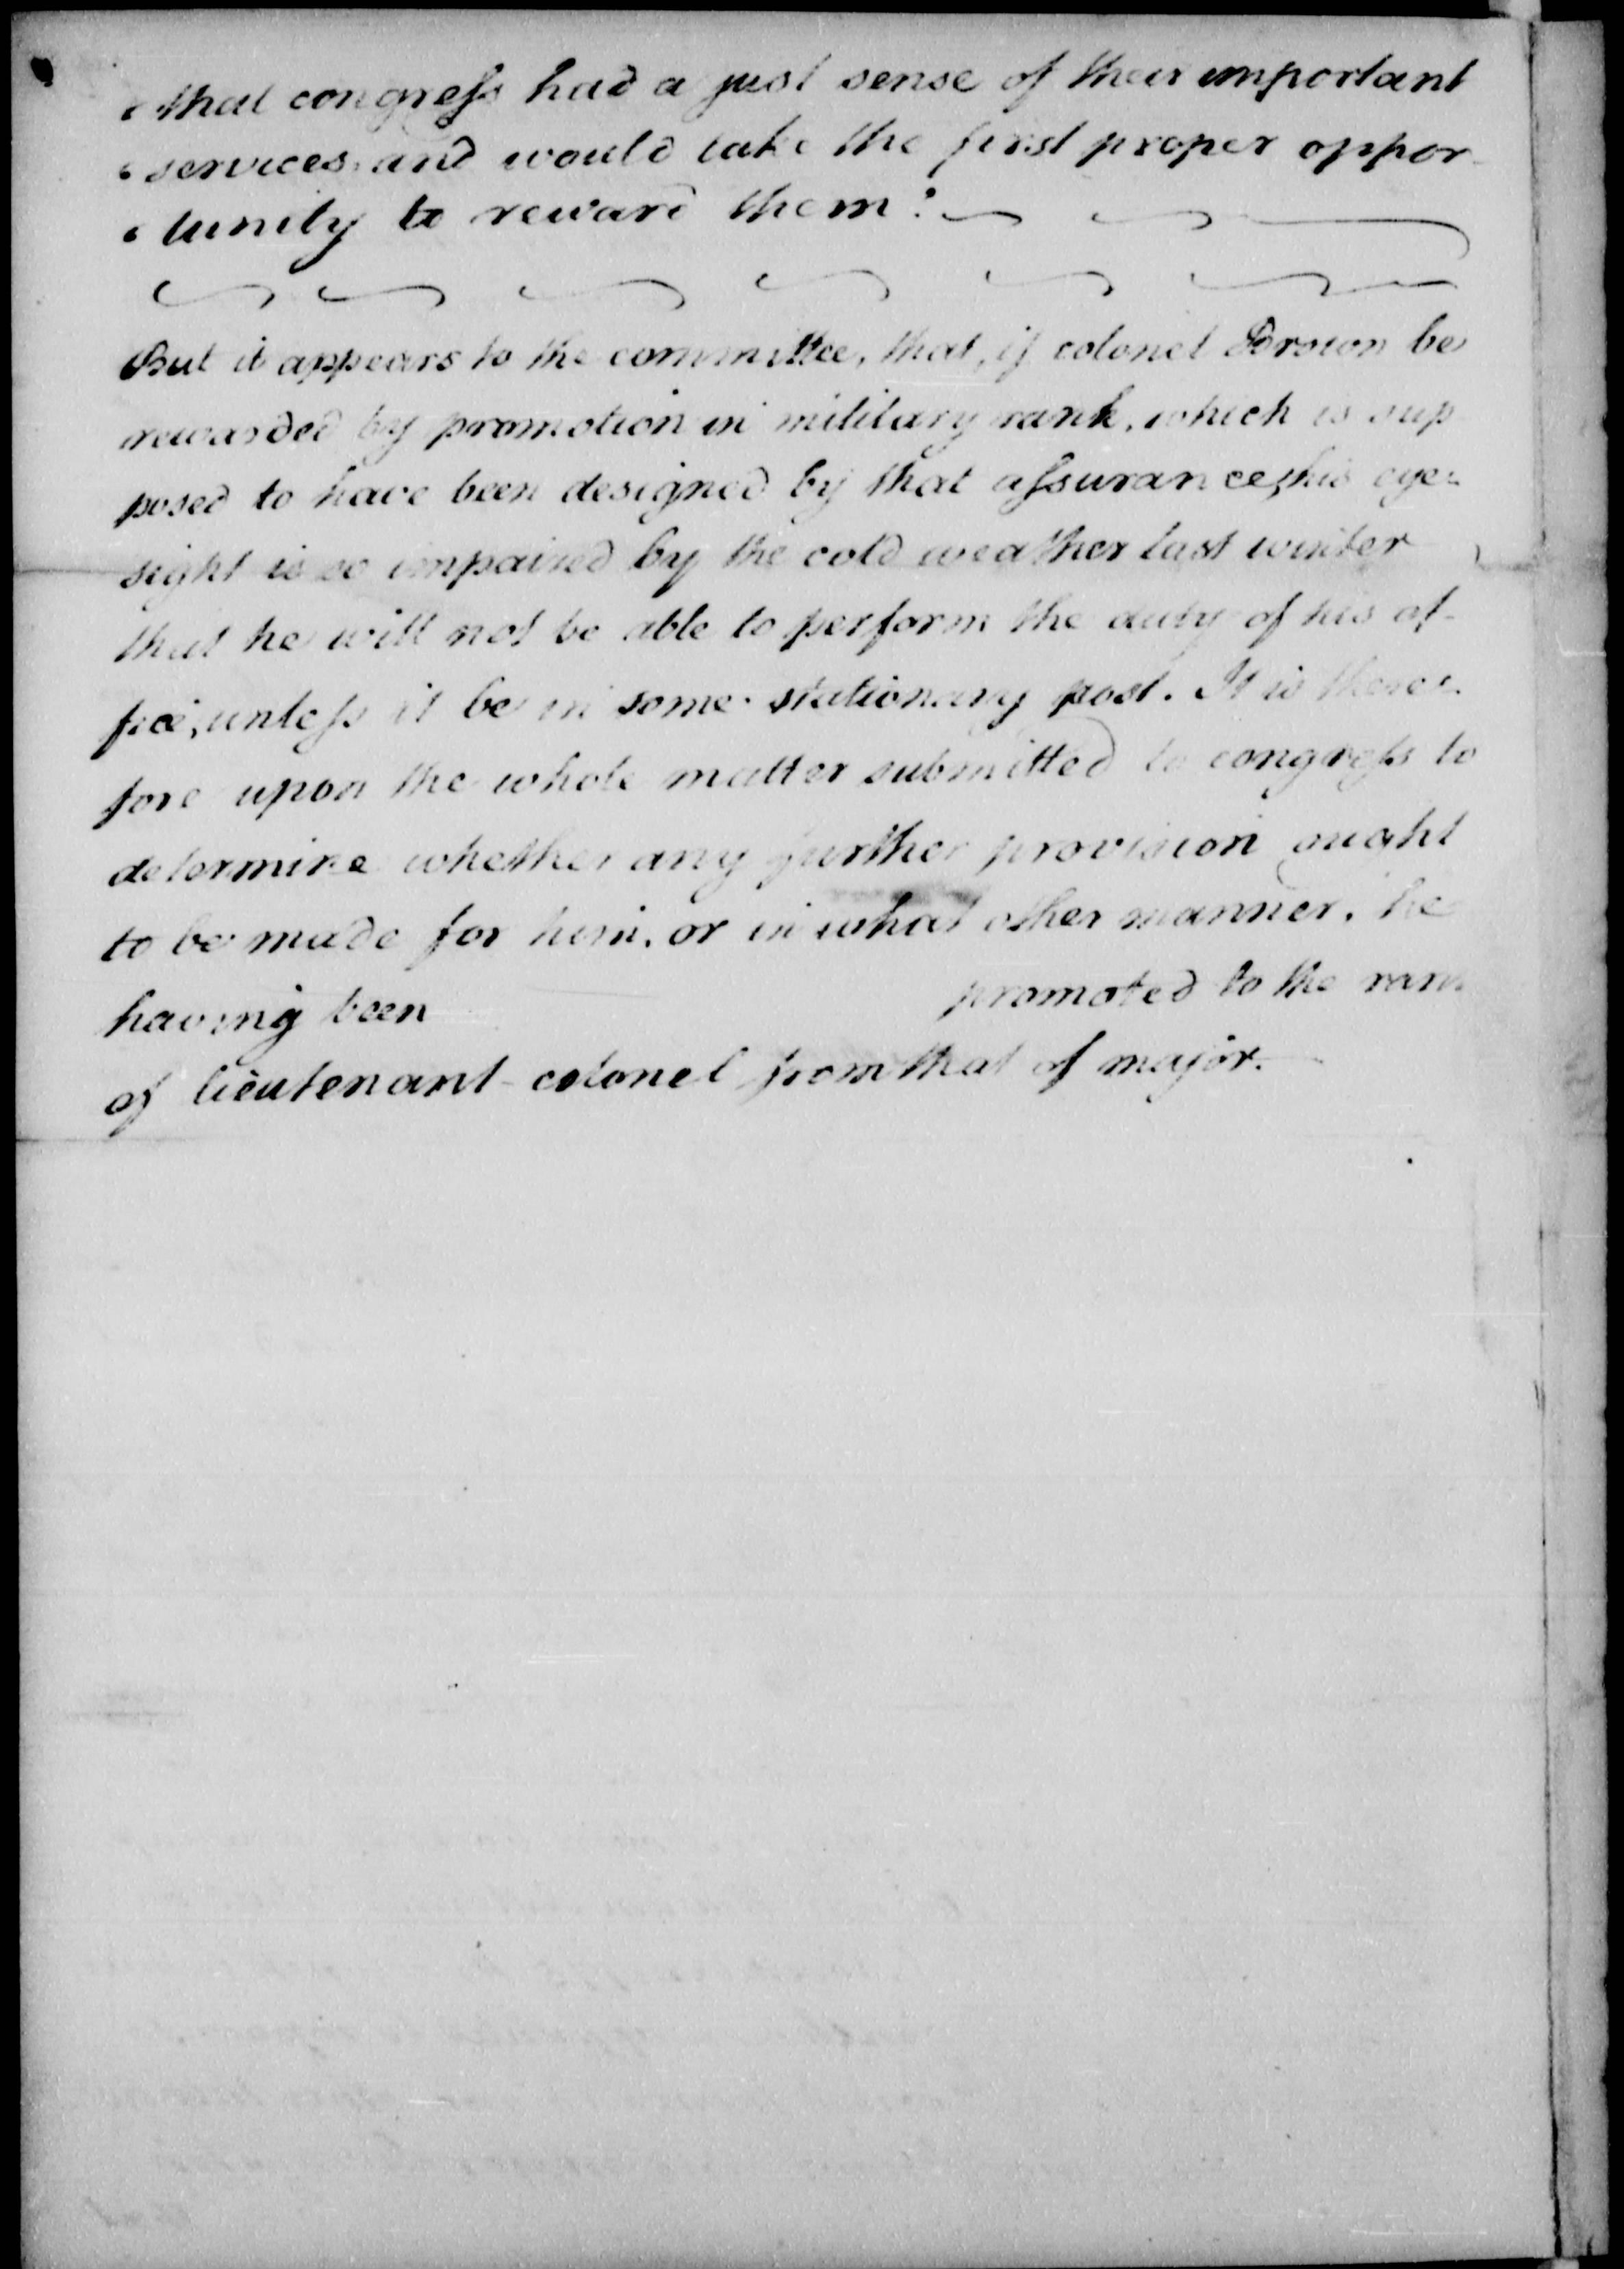 ‘ that congress had a just sense of their important
‘ services, and would take the first proper oppor-
‘ tunity to reward them.’
But it appears to the committee, that, if colonel Brown be
rewarded by promotion in military rank, which is sup
posed to have been designed by that assurance, his eye-
sight is so impaired by the cold weather last winter
that he will not be able to perform the duty of his of-
fice, unless it be in some stationary post. It is there-
fore upon the whole matter submitted to congress to
determine whether any further provision ought
to be made for him, or in what other manner, he
having been promoted to the rank
of lieutenant-colonel from that of major.